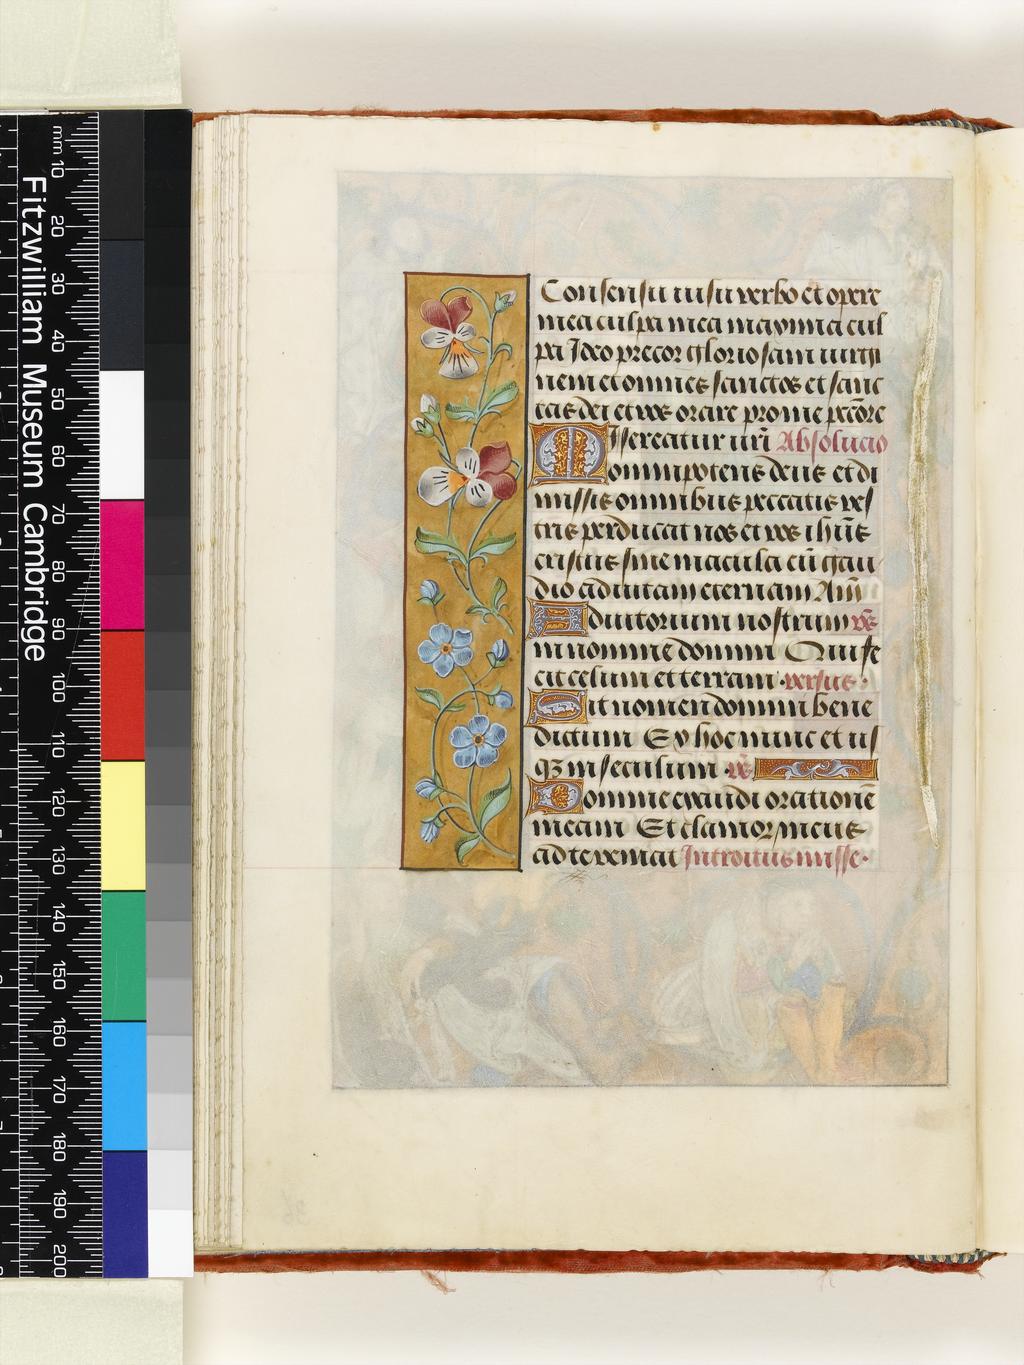 Fitzwilliam Museum Cambridge
mm 10 20 30 40 50 60 70 80 90 100 110 120 130 140 150 160 170 180 190 200
Consensu uisu verbo et opere
mea culpa mea maxima cul
pa Ideo precor gloriosam uirgi
nem et omnes sanctos et sanc
tas dei et vos orare pro me peccore
Misereatur uri Absolucio
omnipotens deus et di
missis omnibus peccatis ves
tris perducat nos et vos ihus
cristus sine macula cu gau
dio ad uitam eternam Am
Adiutorium nostrum
in nomine domini Qui fe
cit celum et terram versus
Sit nomen domini bene
dictum Ex hoc nunc et us
q3 in seculum
Domine exaudi orationē
meam Et clamor meus
ad te veniat Introitus misse
36